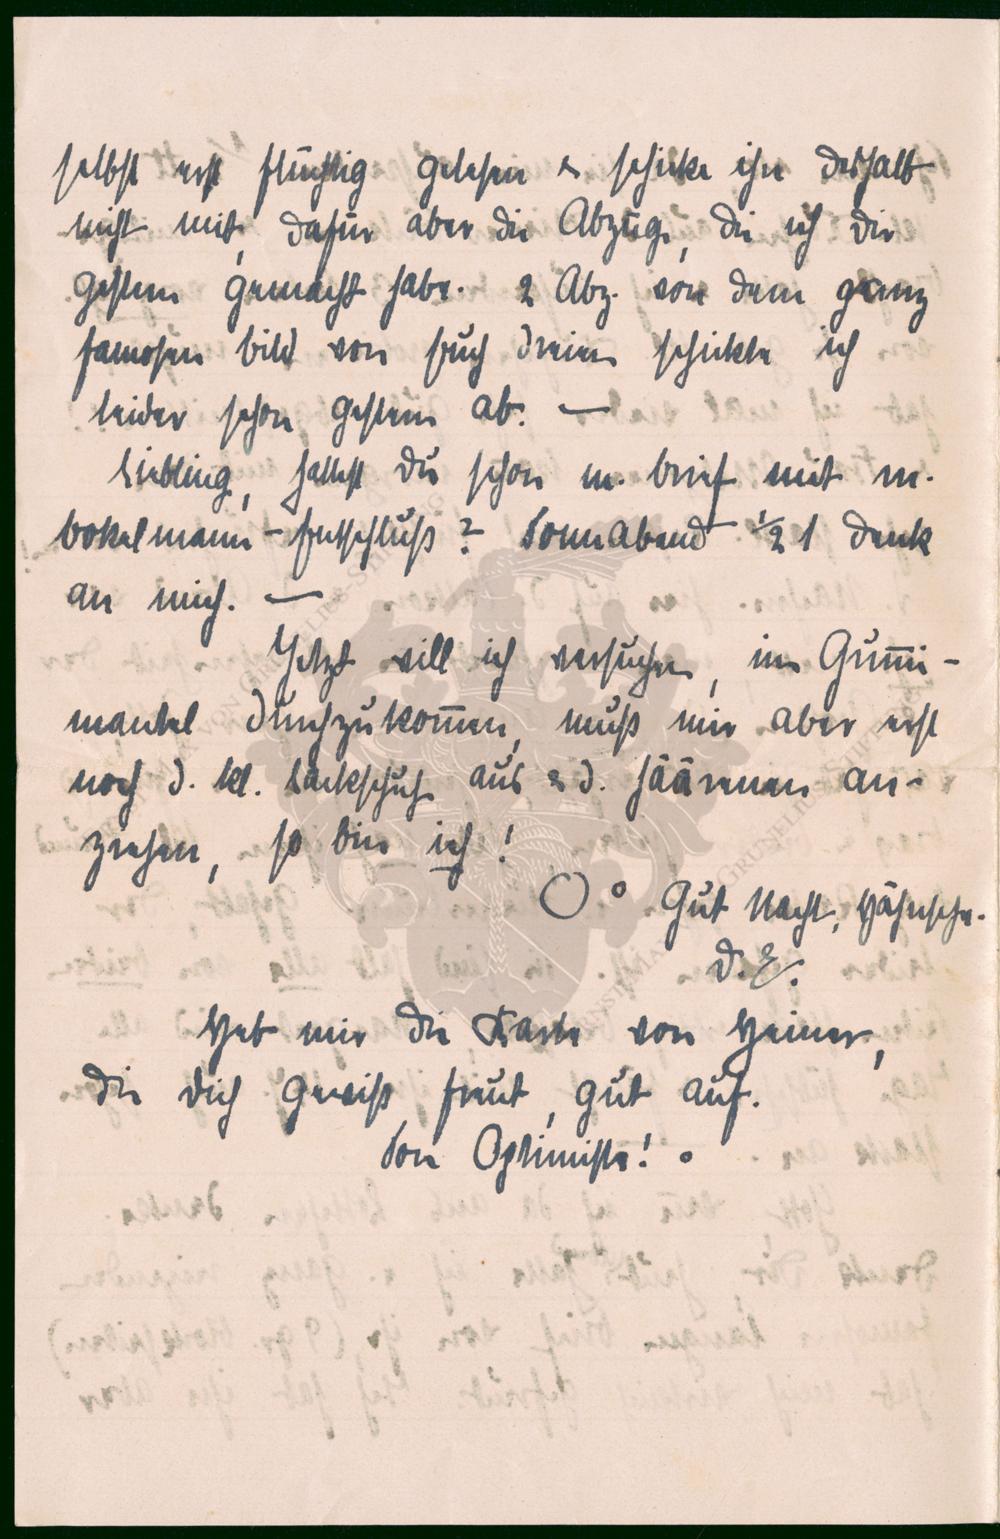 selbst erst flüchtig gelesen & schicke ihn deshalb
nicht mit, dafür aber die Abzüge, die ich Dir
gestern gemacht habe. 2 Abz. von dem ganz
famosen Bild von Euch Dreien schickte ich
leider schon gestern ab. —
Liebling, hattest Du schon m. Brief mit m.
Bokelmann-Entschluß? Sonnabend ½ 1 denk
an mich. —
Jetzt will ich versuchen, im Gumi-
mantel durchzukomen, muß mir aber erst
noch d. kl. Lackschuh aus & d. an-
ziehen, so bin ich!
Gut Nacht,
D. E.
Heb mir die Karte von Heiner,
die Dich gewiß freut, gut auf.
Son Optimiste!